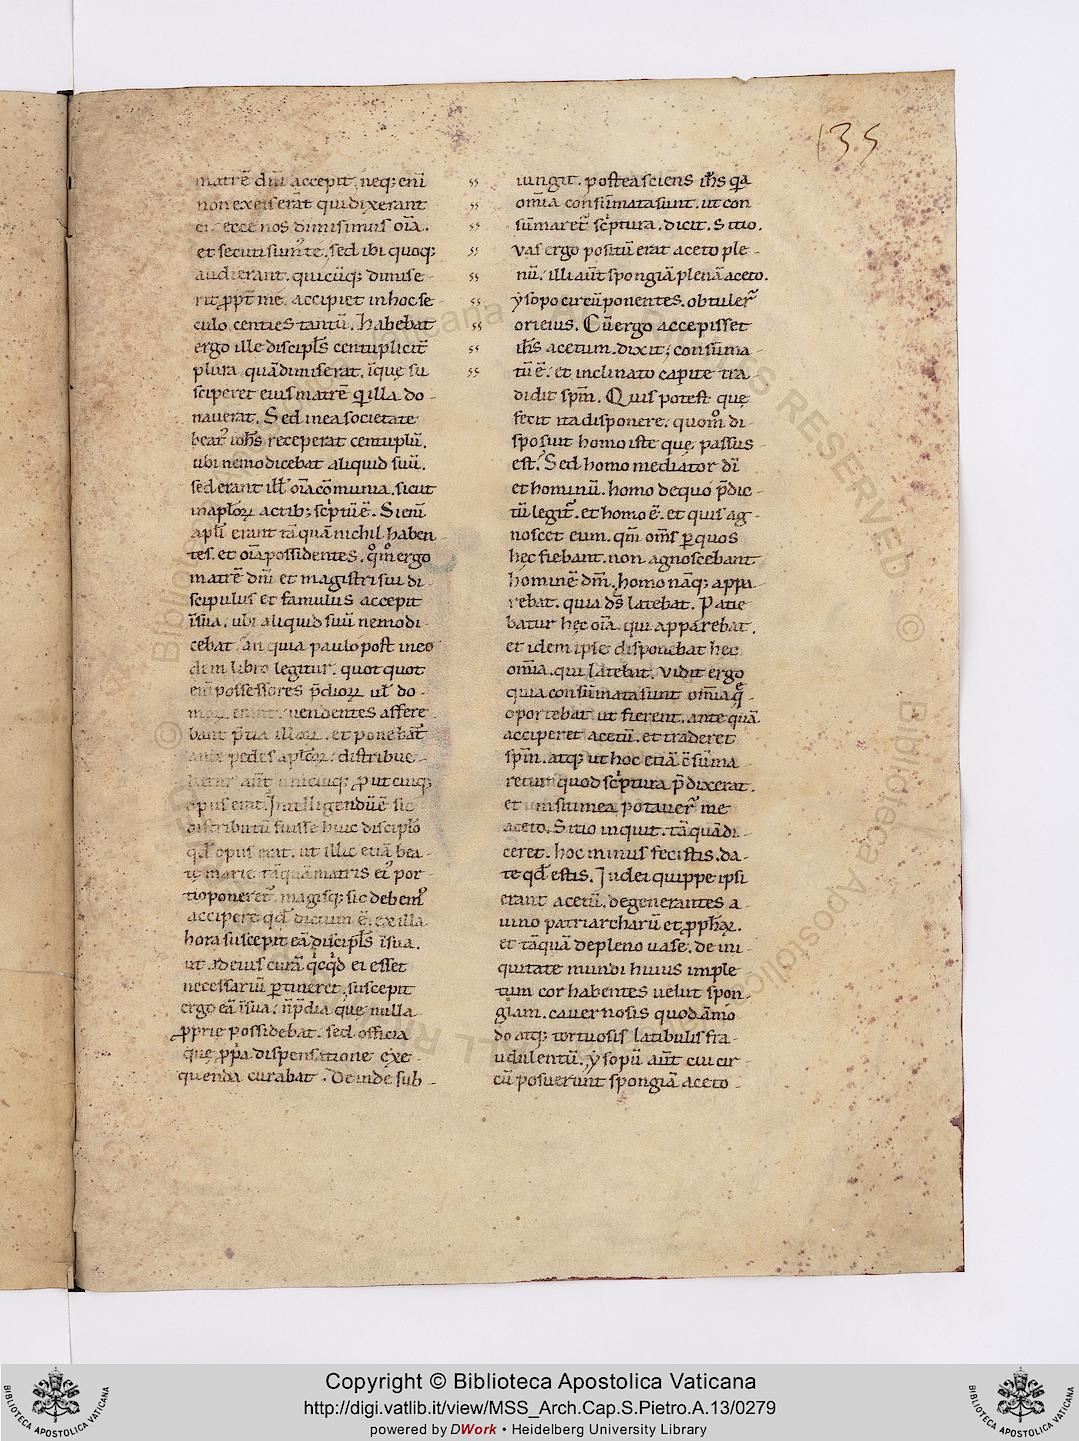 135
matrē dn̄i accepit. neq; eni
non exeis erat qui dixerant
ei. ecce nos dimisimus oīa.
et secuti sum' te. sed ibi quoq;
audierant. quicūq; dimise-
rit ꝓpt' me. accipiet in hoc se-
culo centies tantū. habebat
ergo ille discipl's centuplicit'
plura quā dimiserat. in que su
sciperet eius matrē q illa do-
nauerat. Sed in ea societate
beat' ioh's receperat centuplū.
ubi nemo dicebat aliquid suū.
sed erant ill' oīa cōmunia. sicut
in aplōꝝ actib; scͥptū ē. Sic eni
apl'i erant tāquā nichil haben-
tes. et oīa possidentes. qͦm ergo
matrē dn̄i et magistri sui di-
scipulus et famulus accepit
in sua. ubi aliquid suū nemo di-
cebat. an quia paulo post in eo
dem libro legitur. quotquot
eni possessores p̄dioꝝ ul' do-
moꝝ erant. uendentes affere-
bant p̄tia illoꝝ. et ponebāt
ante pedes aplōꝝ. distribue-
batur aut' unicuiq; ꝓut cuiq;
opus erat. Intelligendū ē sic
distributū fuisse huic disciplo
qd' opus erat. ut illic etiā bea-
te marie tāquā matris ei' por-
tio poneret'. magisq; sic debem'
accipere qd' dictum ē. ex illa
hora suscepit eā discipl's in sua.
ut ad eius curā qͥcqͥd ei esset
necessariū ꝑtineret. suscepit
ergo eā in sua. n̄ p̄dia que nulla
ꝓprie possidebat. sed officia
que ꝓpͥa dispensatione exe-
quenda curabat. Deinde sub-
iungit. postea sciens ih's qa
om̄ia consūmata sunt. ut con
sūmaret' scͥptura. dicit. Sitio.
Vas ergo positū erat aceto ple-
nū. illi aut' spongiā plenā aceto.
ysopo circūponentes. obtuler'
ori eius. Cū ergo accepisset
ih's acetum. dixit; consūma-
tū ē. et inclinato capite tra-
didit sp̄m. Quis potest que
fecit ita disponere. quomͦ di-
sposuit homo iste que passus
est. Sed homo mediator dī
et hominū. homo de quo p̄dic-
tū legit'. et homo ē. et quis ag-
noscet eum. qm̄ om̄s ꝑ quos
hec fiebant. non agnoscebant
hominē dm̄. homo nāq; appa-
rebat. quia ds̄ latebat. Patie
batur hec oīa. qui apparebat.
et idem ipse disponebat hec
om̄ia. qui latebat. Vidit ergo
quia consūmata sunt om̄ia q
oportebat ut fierent. antequā
acciperet acetū. et traderet
sp̄m. atq; ut hoc etiā c̄sūma-
retur quod scͥptura p̄dixerat.
et in siti mea potauer' me
aceto. Sitio inquit. tāquā di-
ceret. hoc minus fecistis. da-
te qd' estis. Iudei quippe ipsi
erant acetū. degenerantes a
uino patriarcharū et ꝓphaꝝ.
et tāquā de pleno uase. de ini-
quitate mundi huius imple
tum cor habentes uelut spon-
giam. cauernosis quodāmo
do atq; tortuosis latibulis fra-
udulentū. ysopū aut' cui cir-
cū posuerunt spongiā aceto-
Copyright © Biblioteca Apostolica Vaticana
http://digi.vatlib.it/view/MSS_Arch.Cap.S.Pietro.A.13/0279
powered by DWork • Heidelberg University Library